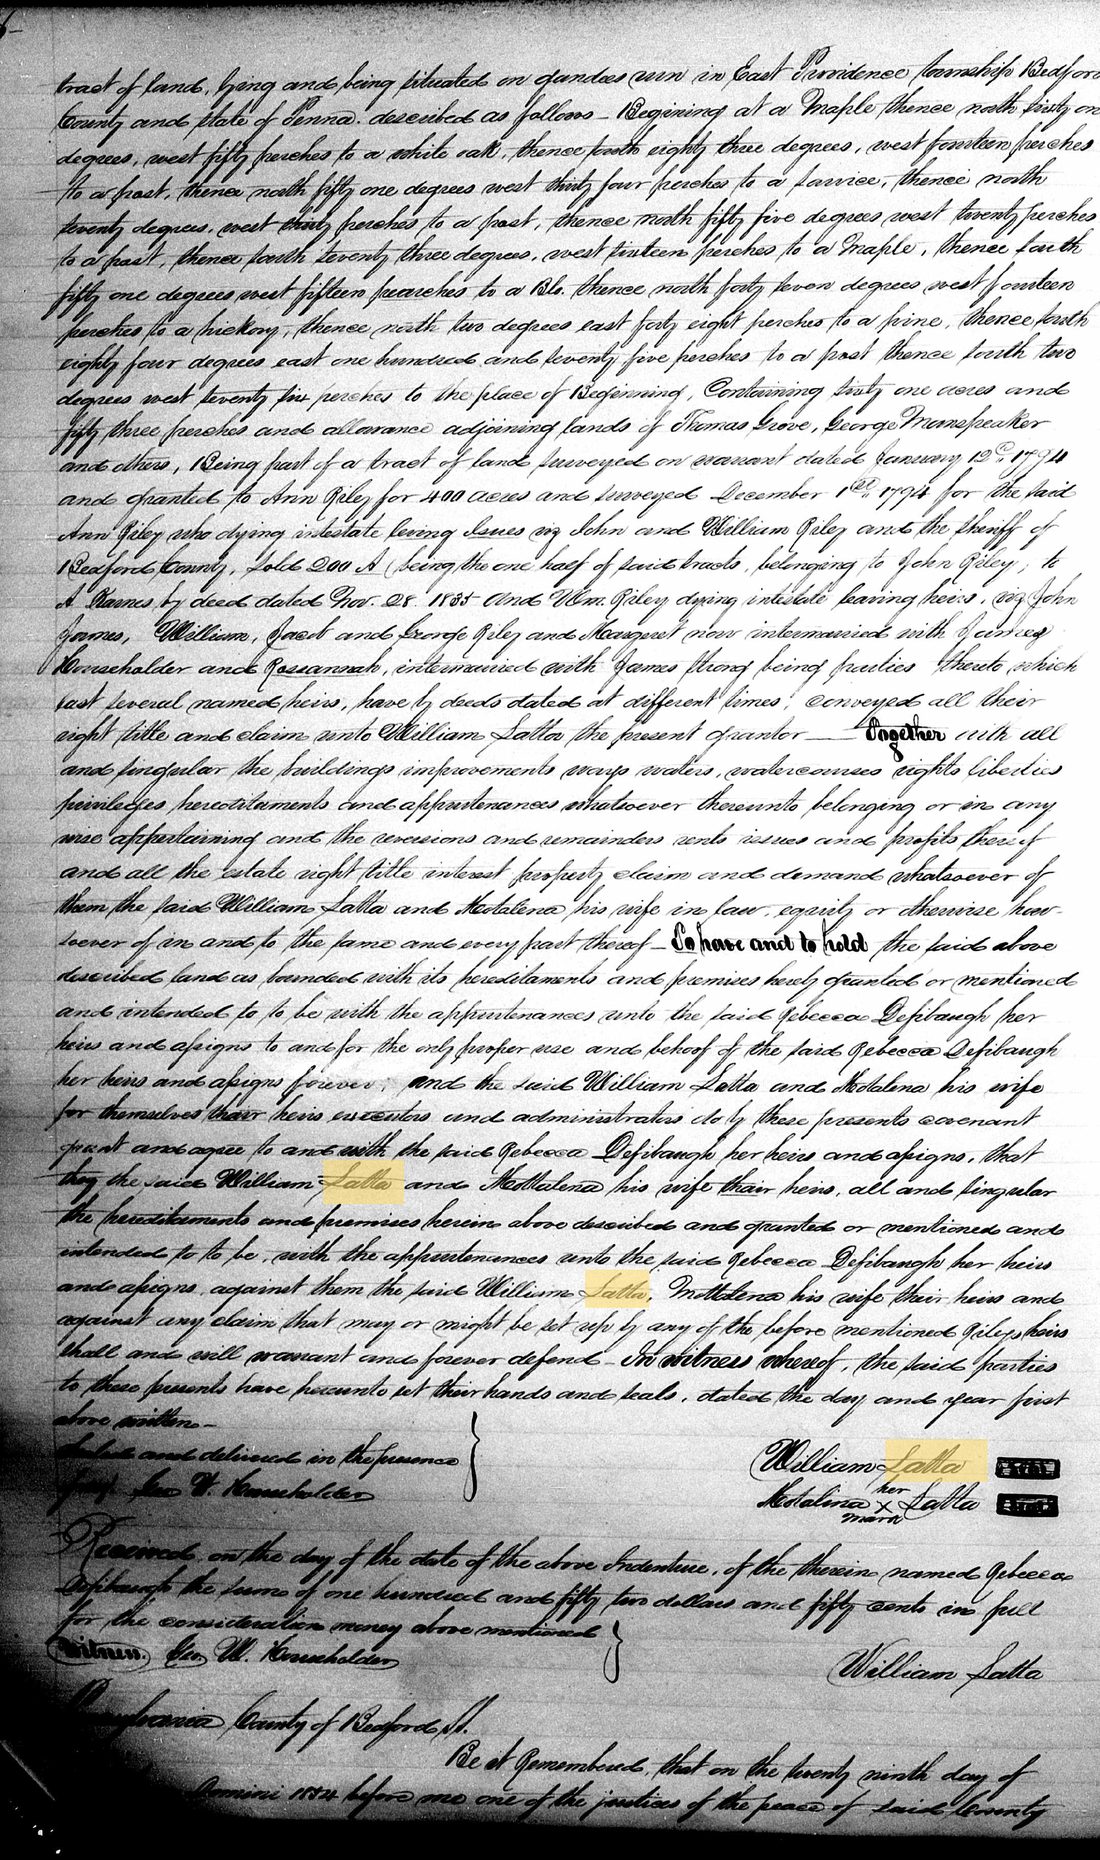 tract of land, lying and being situated on gandees run in East Providence township Bedford
County and state of Penna. described as follows - Begining at a Maple thence north sixty on
degrees, west fifty perches to a white oak, thence south eighty three degrees, west fourteen perches
to a post, thence north fifty one degrees west thirty four perches to a sarvice, thence north
seventy degrees, west thirty perches to a post, thence north fifty five degrees west twenty perches
to a post, thence south seventy three degrees, west sixteen perches to a Maple, thence south
fifty one degrees west fifteen pearches to a Blo. thence north forty seven degrees west fourteen
perches to a hickory, thence north two degrees east forty eight perches to a pine, thence south
eighty four degrees east one hundred and seventy five perches to a post thence south two
degrees west seventy six perches to the place of Beginning, Containing sixty one acres and
fifty three perches and allowance adjoining lands of Thomas Grove, George Manspeaker
and others, Being part of a tract of land surveyed on warrant dated January 12th, 1794
and granted to Ann Riley for 400 acres and surveyed December 1st, 1794 for the said
Ann Riley who dying intestate leving Issues viz John and William Riley and the sheriff of
Bedford County, sold 200 A (being the one half of said tracts, belonging to John Riley, to
A Barnes, by deed dated Nov. 28. 1835 and Wm. Riley dying intestate leaving heirs, viz John
James, William, Jacob and George Riley and Margaret now intermarried with James
Householder and Rossannah, intermarried with James Strong being parties thereto which
last several named heirs, have by deeds dated at different times, conveyed all their
right title and claim unto William Latta the present grantor — Together with all
and singular the buildings improvements ways waters, watercourses rights liberties
privileges hereditaments and appurtenances whatsoever thereunto belonging or in any
wise appertaining and the reversions and remainders rents issues and profits thereof
and all the estate right title interest property claim and demand whatsoever of
them the said William Latta and Modalena his wife in law, equity or otherwise how-
soever of in and to the same and every part thereof - To have and to hold the said above
described land as bounded with its hereditaments and premises hereby granted or mentioned
and intended to to be with the appurtenances unto the said Rebecca Defibaugh her
heirs and assigns to and for the only proper use and behoof of the said Rebecca Defibaugh
her heirs and assigns forever; and the said William Latta and Modalena his wife
for themselves their heirs executors and administrators do by these presents covenant
grant and agree to and with the said Rebecca Defibaugh her heirs and assigns, that
they the said William Latta and Mottalena his wife thair heirs, all and singular
the hereditaments and premises herein above described and granted or mentioned and
intended to to be, with the appurtenances unto the said Rebecca Defibaugh her heirs
and assigns, against them the said William Latta, Mottalena his wife their heirs and
against any claim that may or might be set up by any of the before mentioned Rileys heirs
shall and will warrant and forever defend - In witness whereof, the said parties
to these presents have hereunto set their hands and seals, dated the day and year first
above written -
Sealed and delivered in the presence
Geo W. Householder
William Latta
her
Modalina x Latta
mark
Received, on the day of the date of the above Indenture, of the therein named Rebecca
Defibaugh the sume of one hundred and fifty two dollars and fifty cents in full
for the consideration money above mentioned
Witness. Geo, W. Householder
William Latta
Pennsylvania County of Bedford SS.
Be it Remembered, that on the twenty ninth day of
Domini 1854 before me one of the justices of the peace of said County